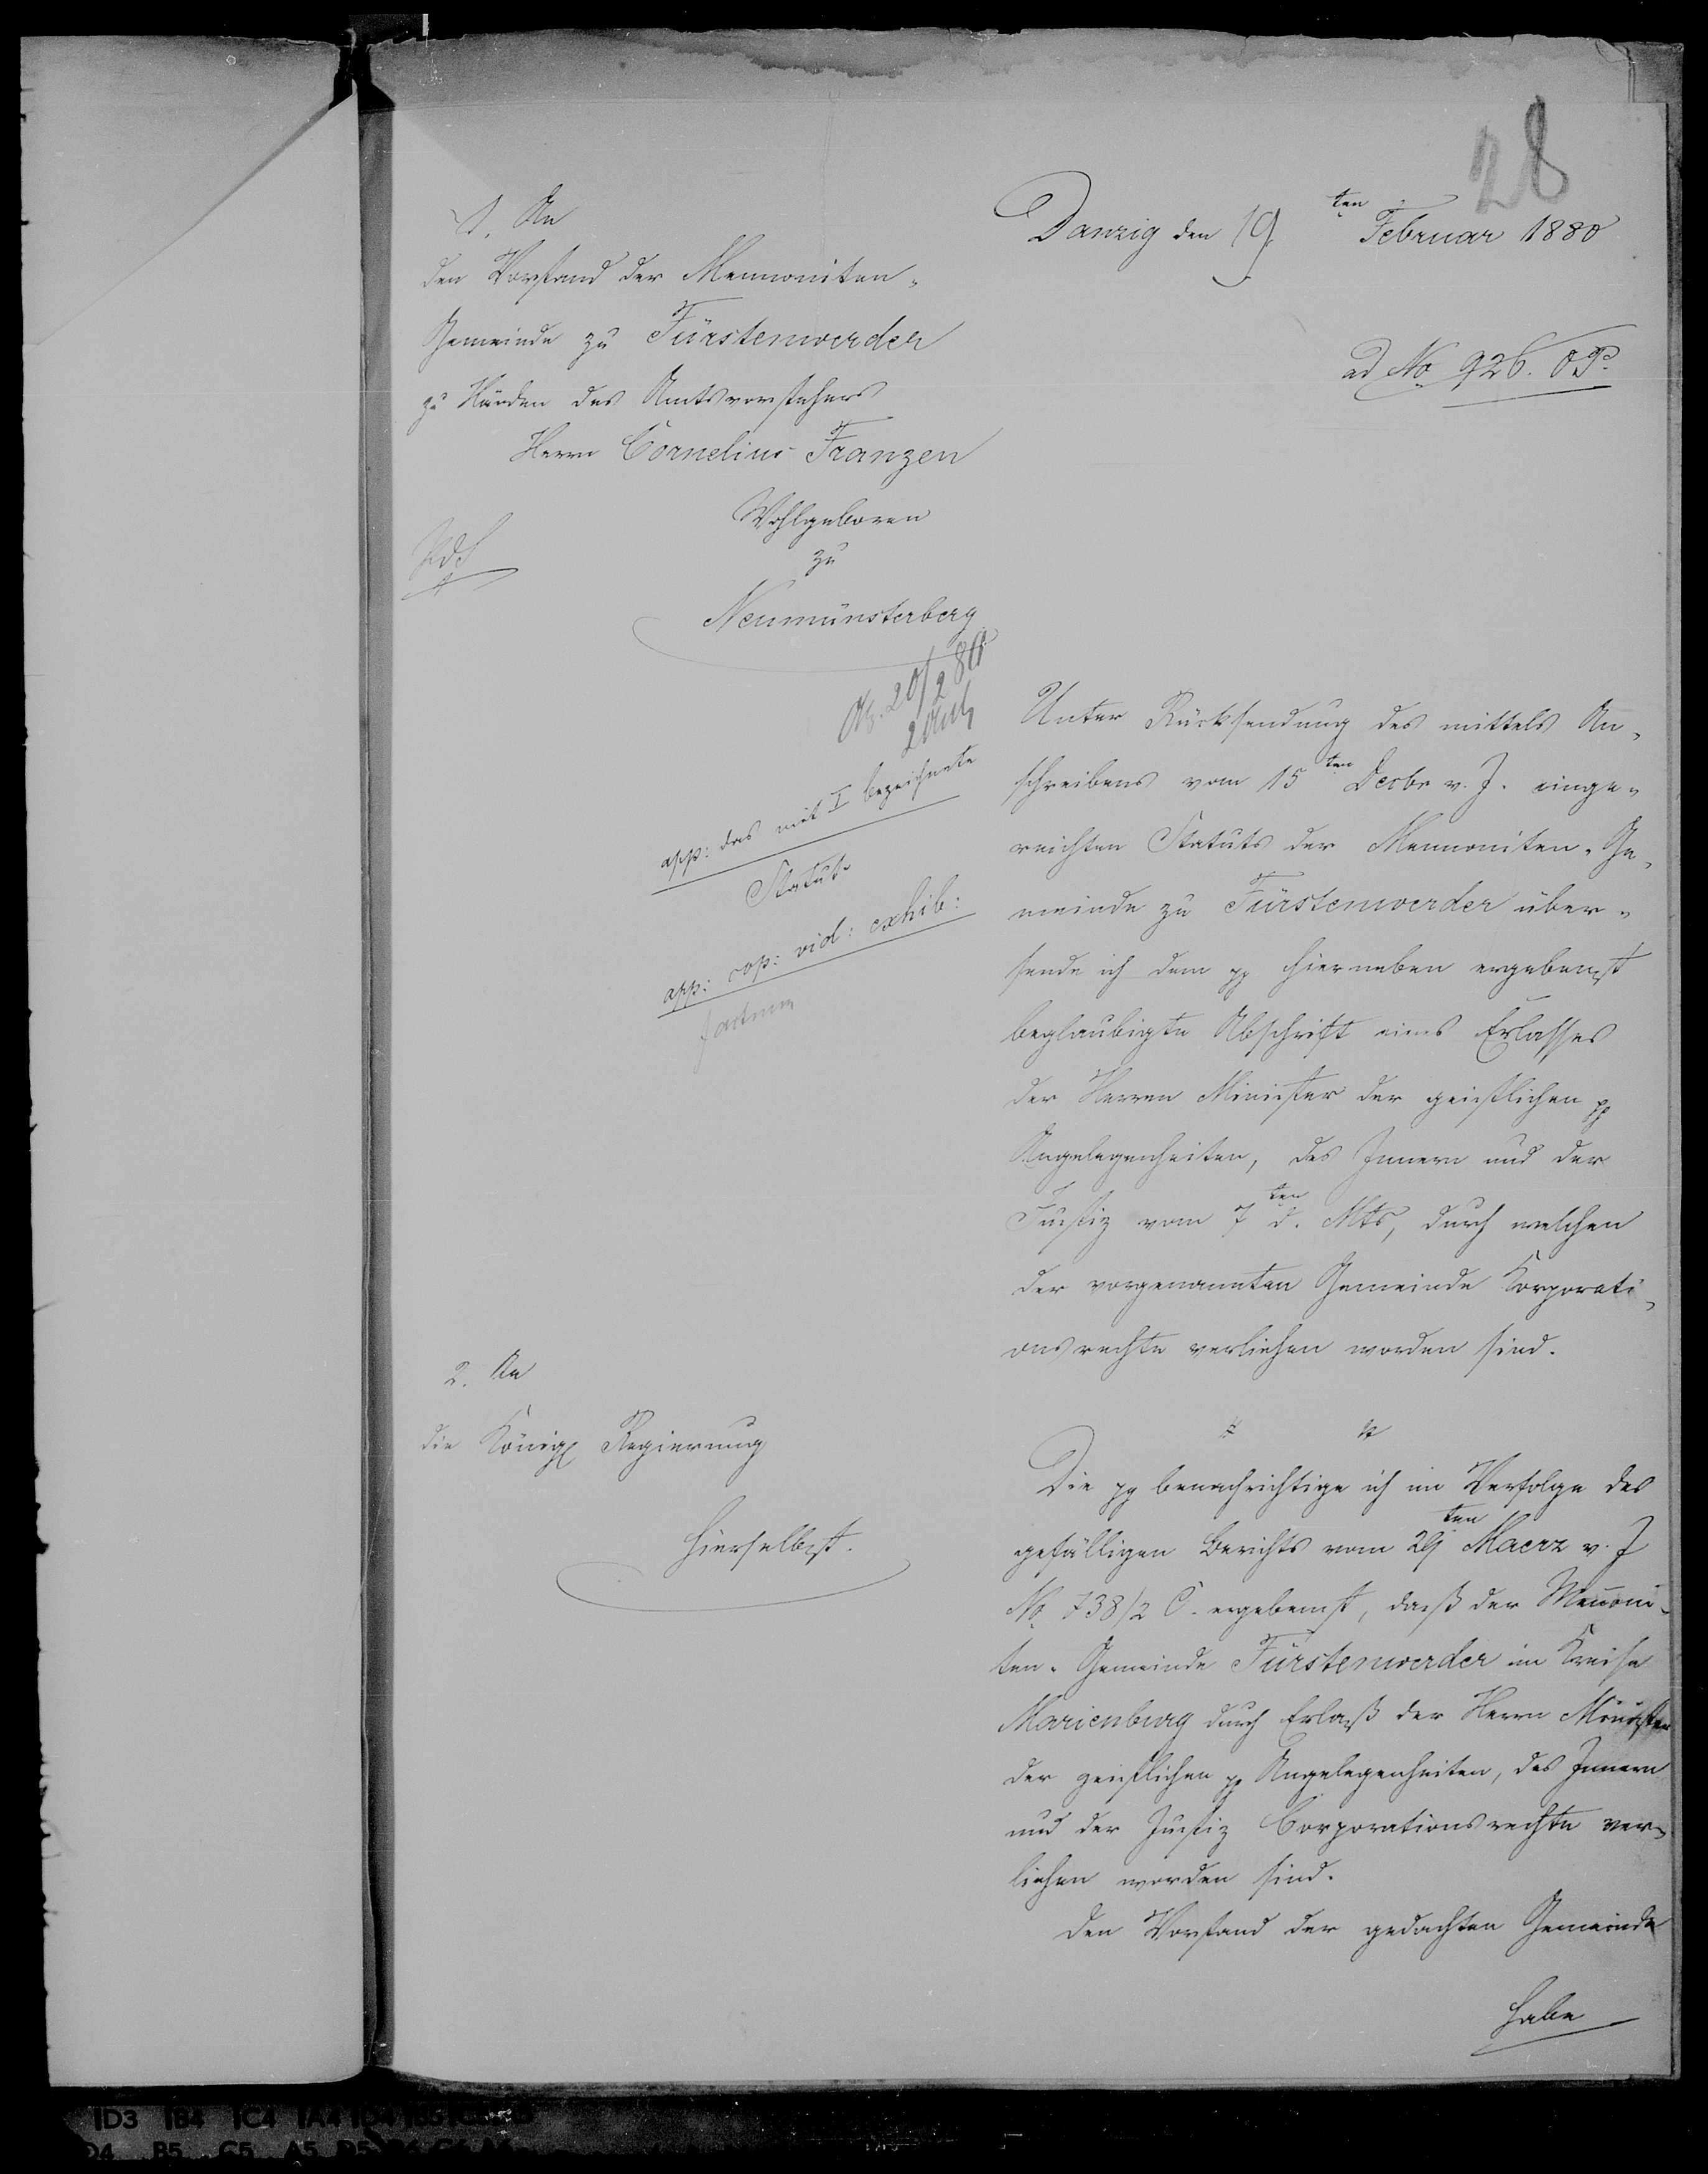 28
Danzig den 19ten Februar 1880
ad No 926. O.P.
1. An
den Vorstand der Mennoniten-
Gemeinde zu Fürstenwerder
zu Händen des Amtsvorstehers
Herrn Cornelius Franzen
Wohlgeboren
zu
Neumünsterberg
20/2 80
app: das mit I bezeichnete
Statut
app: cop: vid: exhib:
Unter Rücksendung des mittels An-
schreibens vom 15ten Decbr v. J. einge-
reichten Statuts der Mennoniten-Ge-
meinde zu Fürstenwerder über-
sende ich dem pp hierneben ergebenst
beglaubigte Abschrift eines Erlasses
der Herren Minister der geistlichen pp
Angelegenheiten, des Innern und der
Justiz vom 7ten d. Mts, durch welchen
der vorgenannten Gemeinde Korporati-
onsrechte verliehen worden sind.
2. An
die Königl Regierung
hierselbst.
Die pp benachrichtige ich im Verfolge des
gefälligen Berichts vom 29ten Maerz v. J
No 738/2 C. ergebenst, daß der Menoni-
ten-Gemeinde Fürstenwerder im Kreise
Marienburg durch Erlaß der Herrn Minister
der geistlichen pp Angelegenheiten, des Innern
und der Justiz Corporationsrechte ver-
liehen worden sind.
Den Vorstand der gedachten Gemeinde
habe
D3 B4 C4 A4
D4 B5 C5 A5 D5